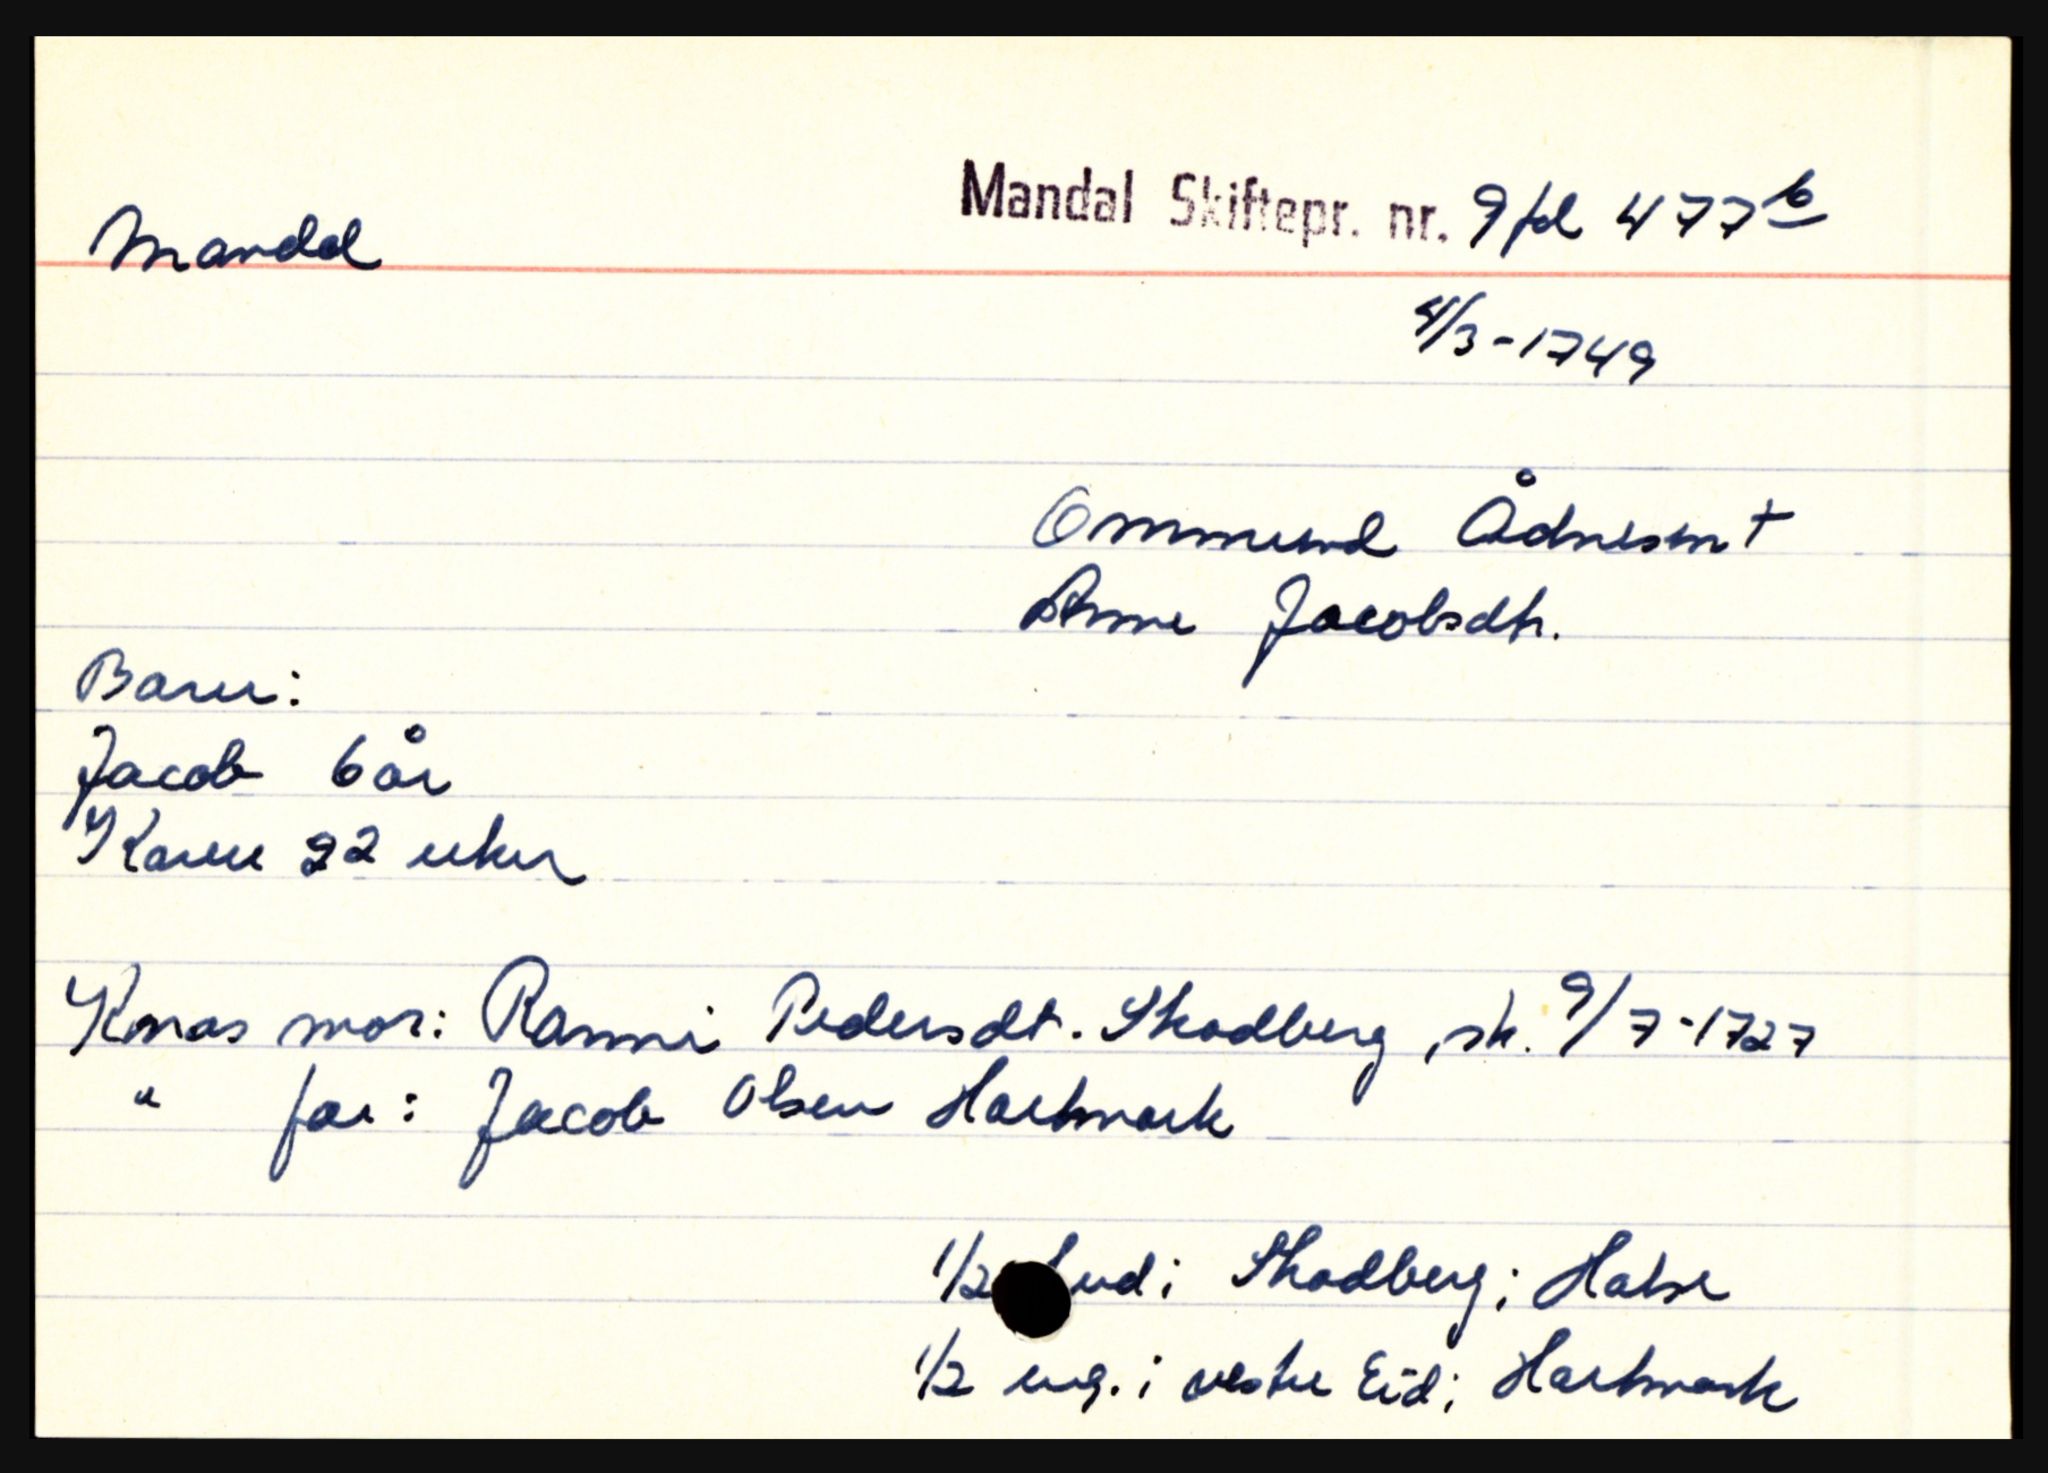 Mandal Skiftepr. nr. 9 fol 477b
Mandal
4/3-1749
Ommund Ådnesen †
Anne Jacobsdtr.
Barn:
Jacob 6 år
Karen 22 uker
Knas mor: Ranni Pedersdt. Skodberg, sk. 9/7-1727
" far: Jacob Olsen Hartmark
1/2 hud i Skodberg i Halse
1/2 eng. i vestre Eid i Hartmark